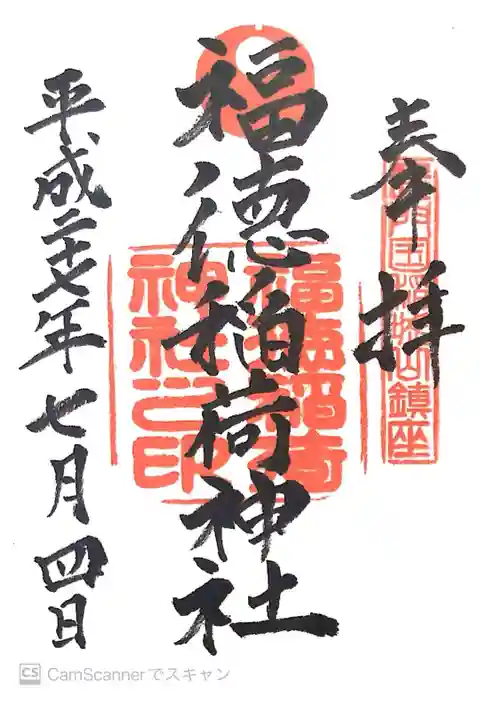 奉拝
鎮座
福徳稲荷神社
福徳稲荷
神社之印
平成二十七年七月四日
CS CamScannerでスキャン